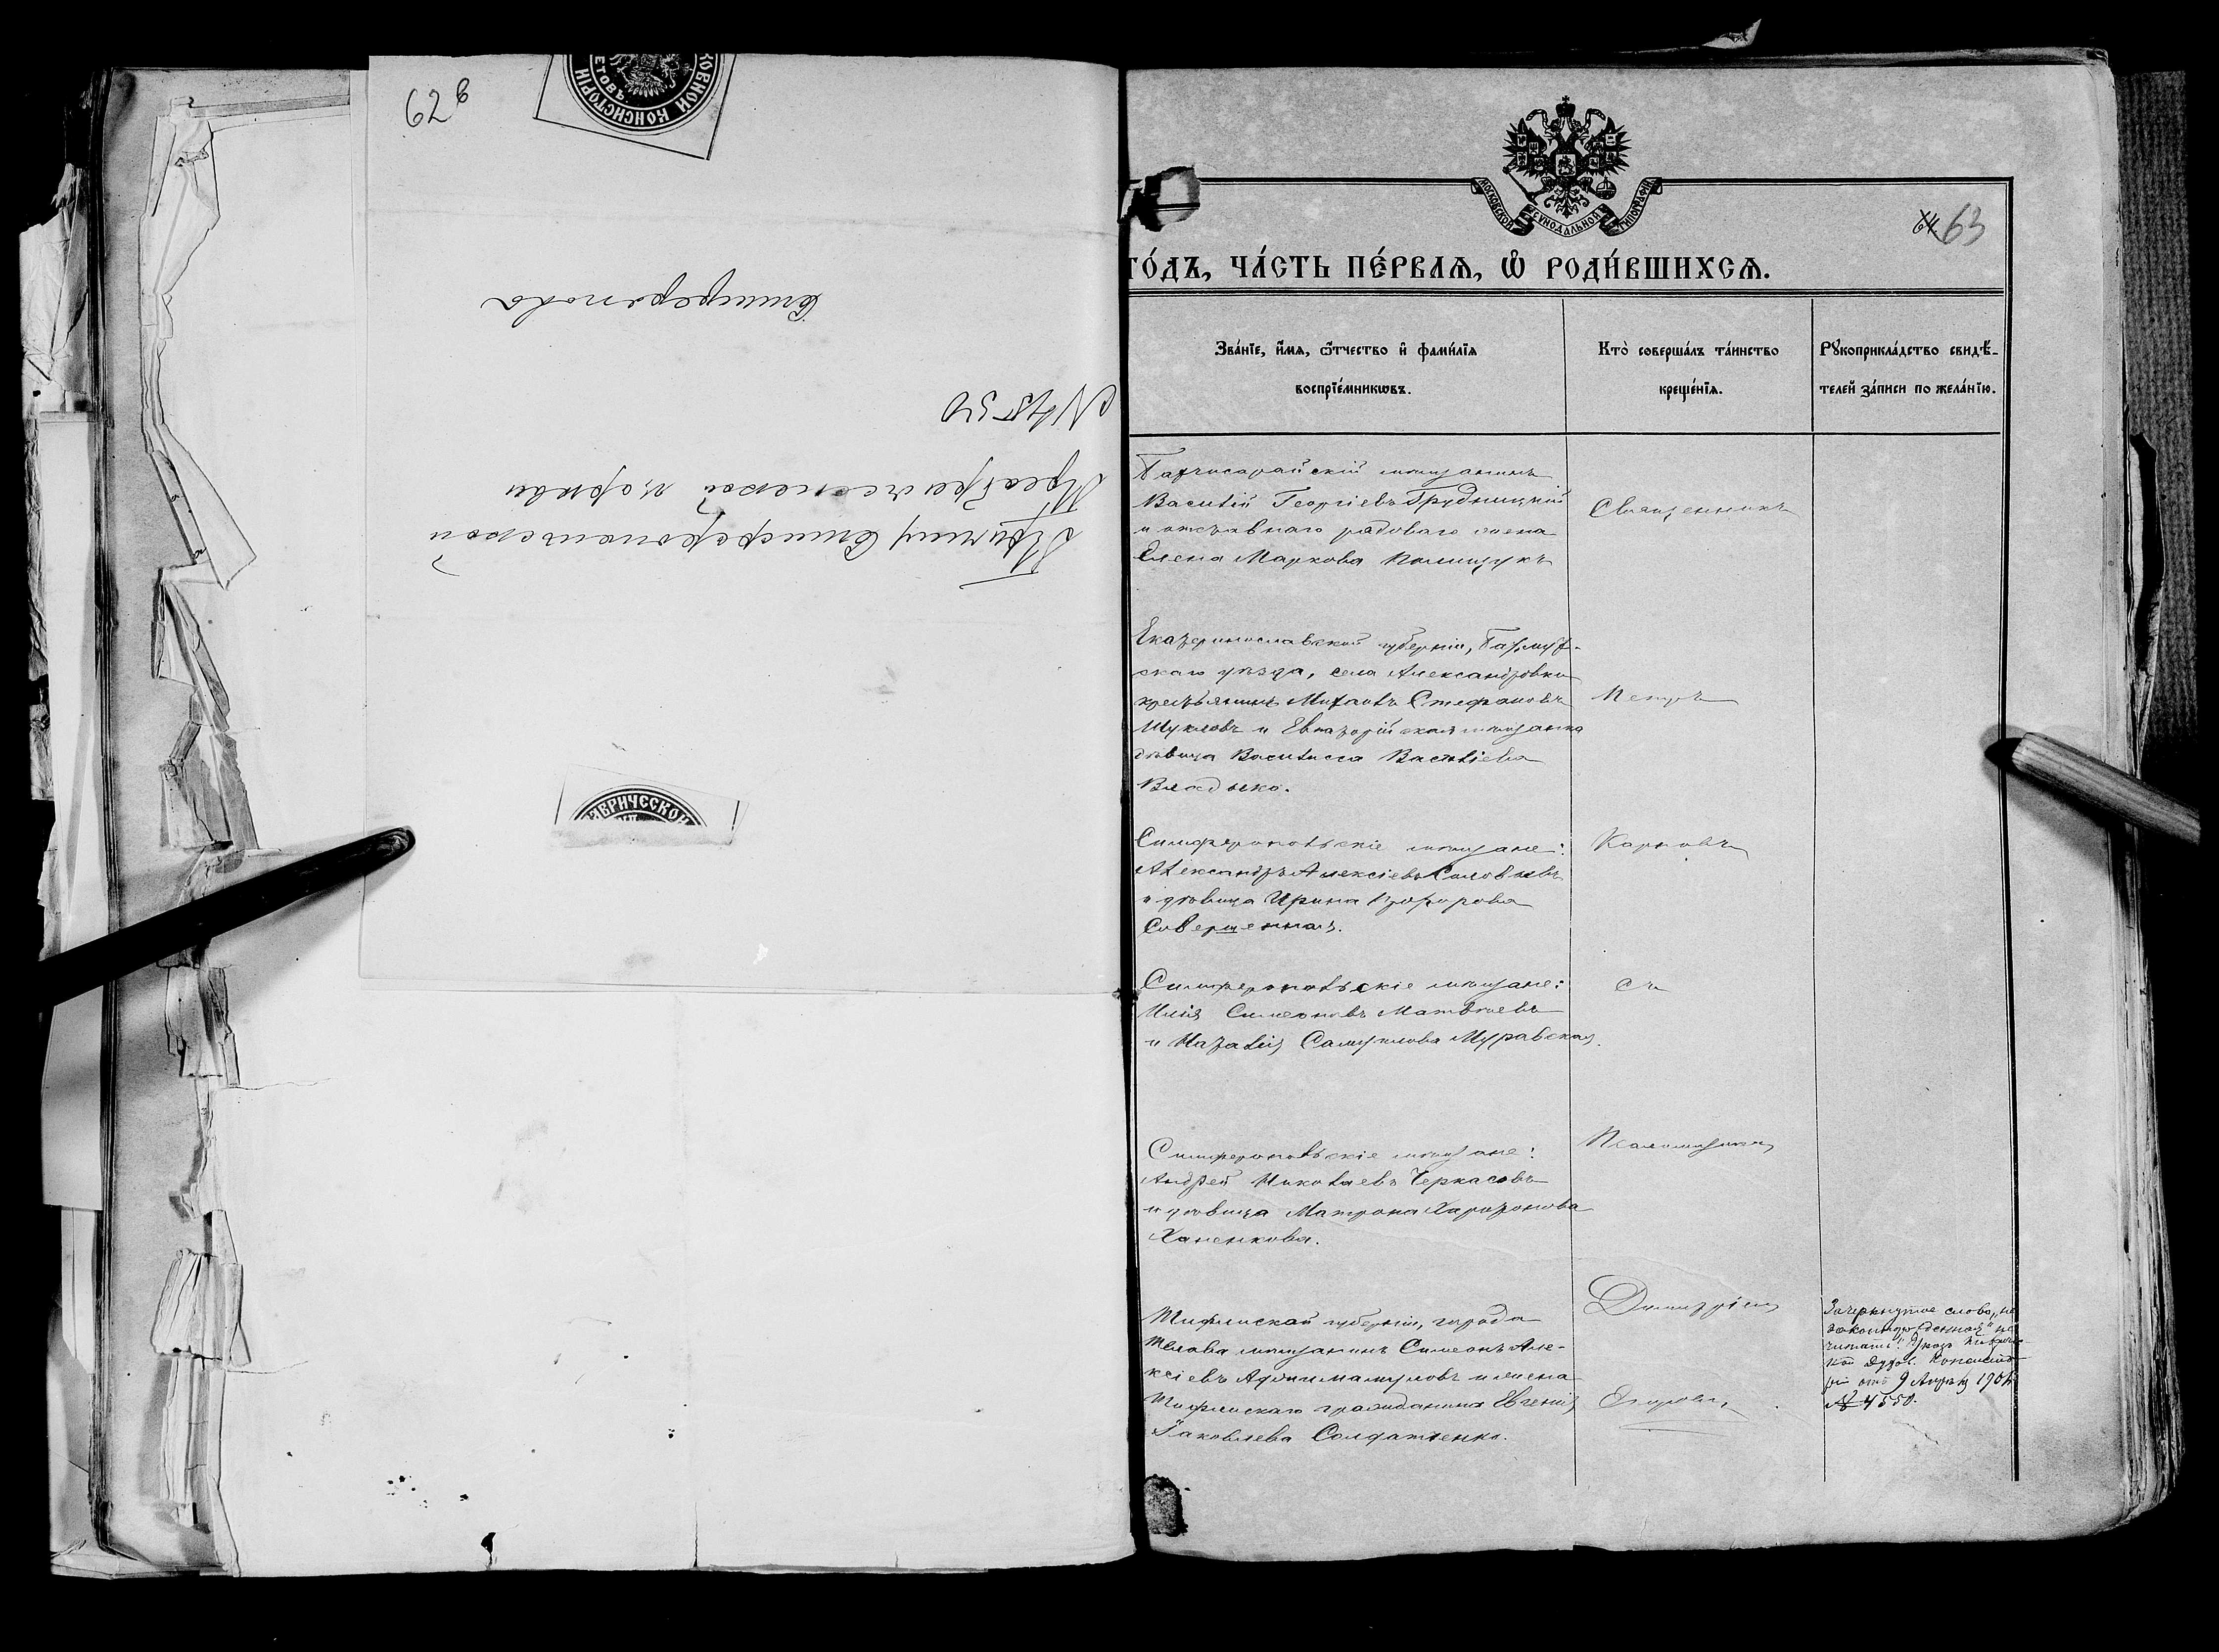 62в
ЕТОВЪ
ОВНОЙ КОНСИСТОРІИ
Симферополь
№ 4550
Причту Симферопольской
Преображенской церкви
ВРИЧЕСКОЙ
МОСКОВСКОЙ СѴНОДАЛЬНОЙ ТИПОГРАФІИ
64 63
ГО́ДЪ, ЧА́СТЬ ПЕ́РВАѦ, Ѡ҆ РОДИ́ВШИХСѦ.
Зва́нїе, и҆́мѧ, ѻ҆́тчество и҆ фами́лїѧ
воспрїе́мникѡвъ.
Кто̀ соверша́лъ та́инство
креще́нїѧ.
Рꙋкоприкла́дство свидѣ́-
телей за́писи по жела́нїю.
Бахчисарайскій мѣщанинъ
Василій Георгіевъ Грудницкій
и отставнаго рядоваго жена
Елена Маркова Полищукъ
Священникъ
Екатеринославской губерніи, Бахмут-
скаго уѣзда, села Александровки
крестьянинъ Михаилъ Стефановъ
Шукловъ и Евпаторійская мѣщанка
дѣвица Василиса Васильева
Владыко.
Петръ
Симферопольскіе мѣщане:
Александръ Алексіевъ Соловьевъ
и дѣвица Ирина
Совершенная.
Карповъ
Симферопольскіе мѣщане:
Илія Симеоновъ Матвѣевъ
и Наталія Самуилова Муравская.
съ
Симферопольскіе мѣщане:
Андрей Николаевъ Черкасовъ
и дѣвица Матрона Харитонова
Ханенкова.
Псаломщикомъ
Тифлиской губерніи, города
Телава мѣщанинъ Симеонъ Але-
ксіевъ и жена
Тифлискаго гражданина Евгенія
Іаковлева Солдатенко.
Димитріемъ
Егоровымъ
Зачеркнутое слово „не
законнорожденная" не
читать. Указъ Тавриче-
кой Духов. Консисто-
ріи отъ 9 Апрѣля 190
№ 4550.